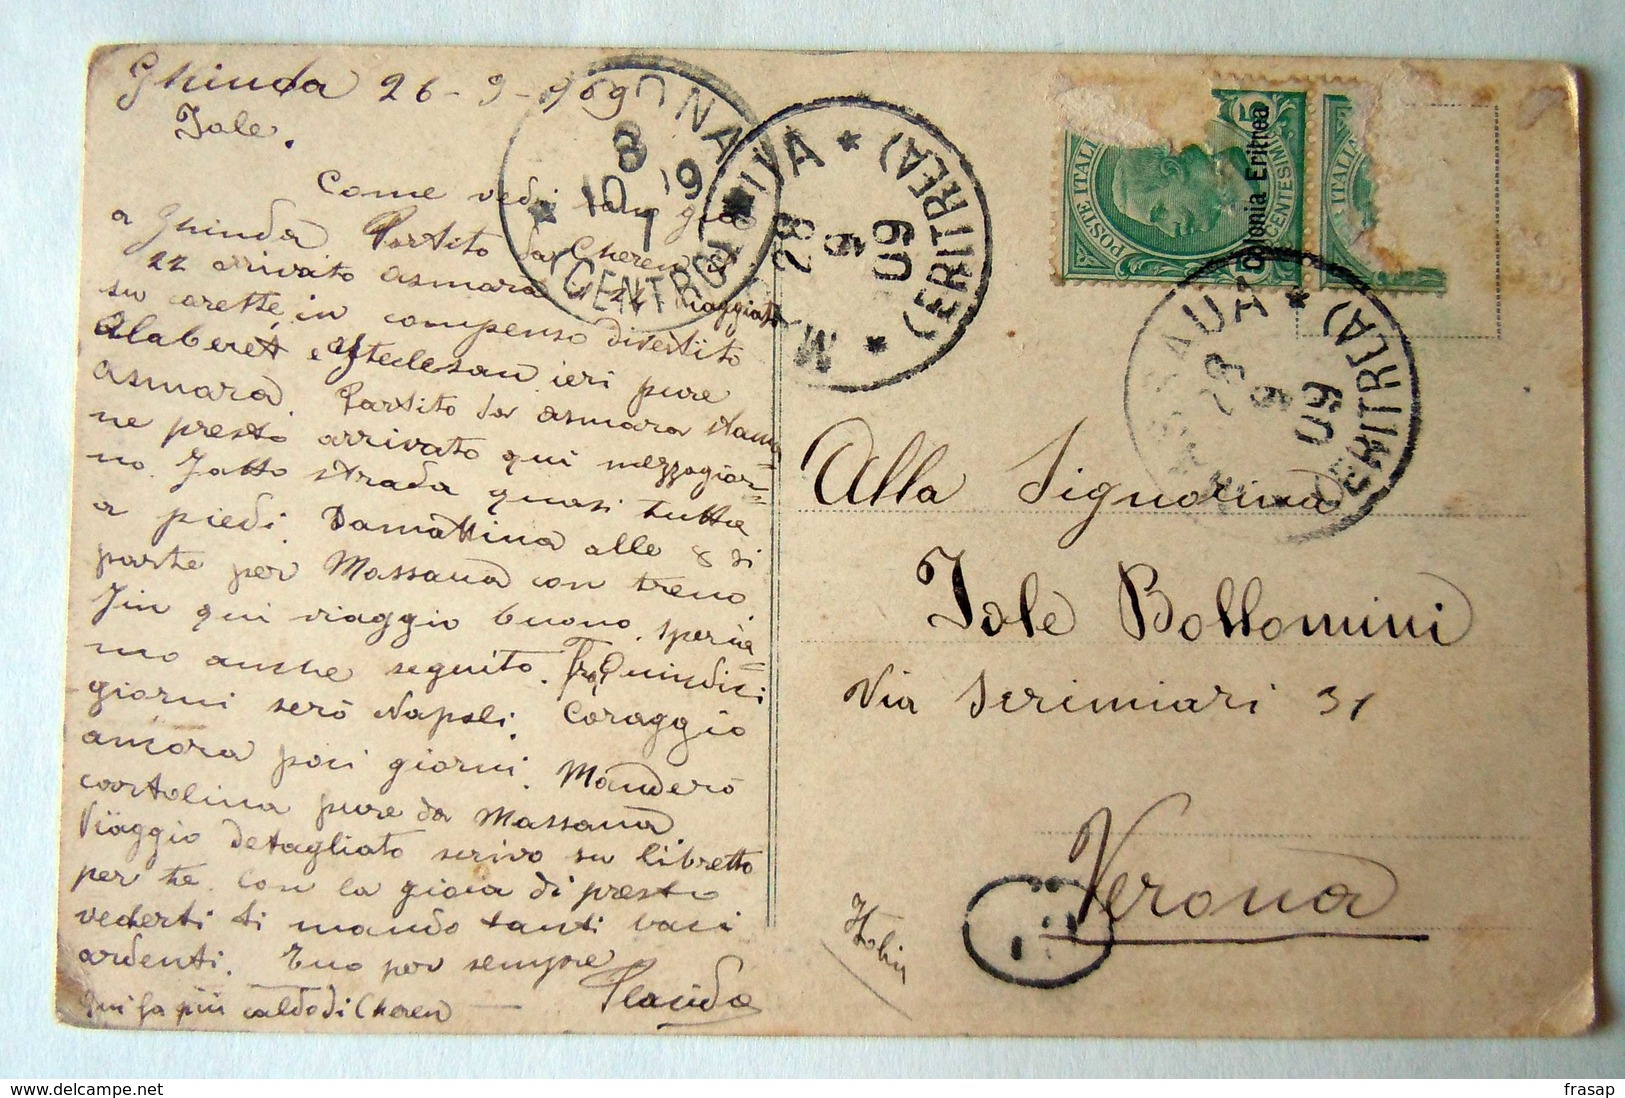 Ghinda 26-9-909
Iole.
Come vedi son già
a Ghinda. Partito da Cheren il
22 arrivato Asmara il 24 viaggiato
su carette, in compenso divertito
Alaberet e Aftedesan ieri pure
Asmara. Partito da Asmara stama=
ne presto arrivato qui mezzogior=
no. Fatto strada quasi tutta
a piedi. Damattina alle 8 si
parte per Massaua con treno.
Fin qui viaggio buono. Speria=
mo anche seguito. Fra Quindici
giorni serò Napoli. Coraggio
ancora poci giorni. Manderò
cartolina pure da Massaua.
Viaggio detagliato scrivo su libretto
per te. Con la gioia di presto
vederti ti mando tanti baci
ardenti. Tuo per sempre
Placido
Qui fa più caldo di Cheren
Alla Signorina
Iole Bollomini
Via Scrimiari 31
Verona
Italia
POSTE ITAL
Colonia Eritrea
5
CENTESIMI
ITALIA
VERONA
(CENTRO)
8
10 09
(ERITREA)
28
9
09
MASSAUA
28
9
09
(ERITREA)
frasap